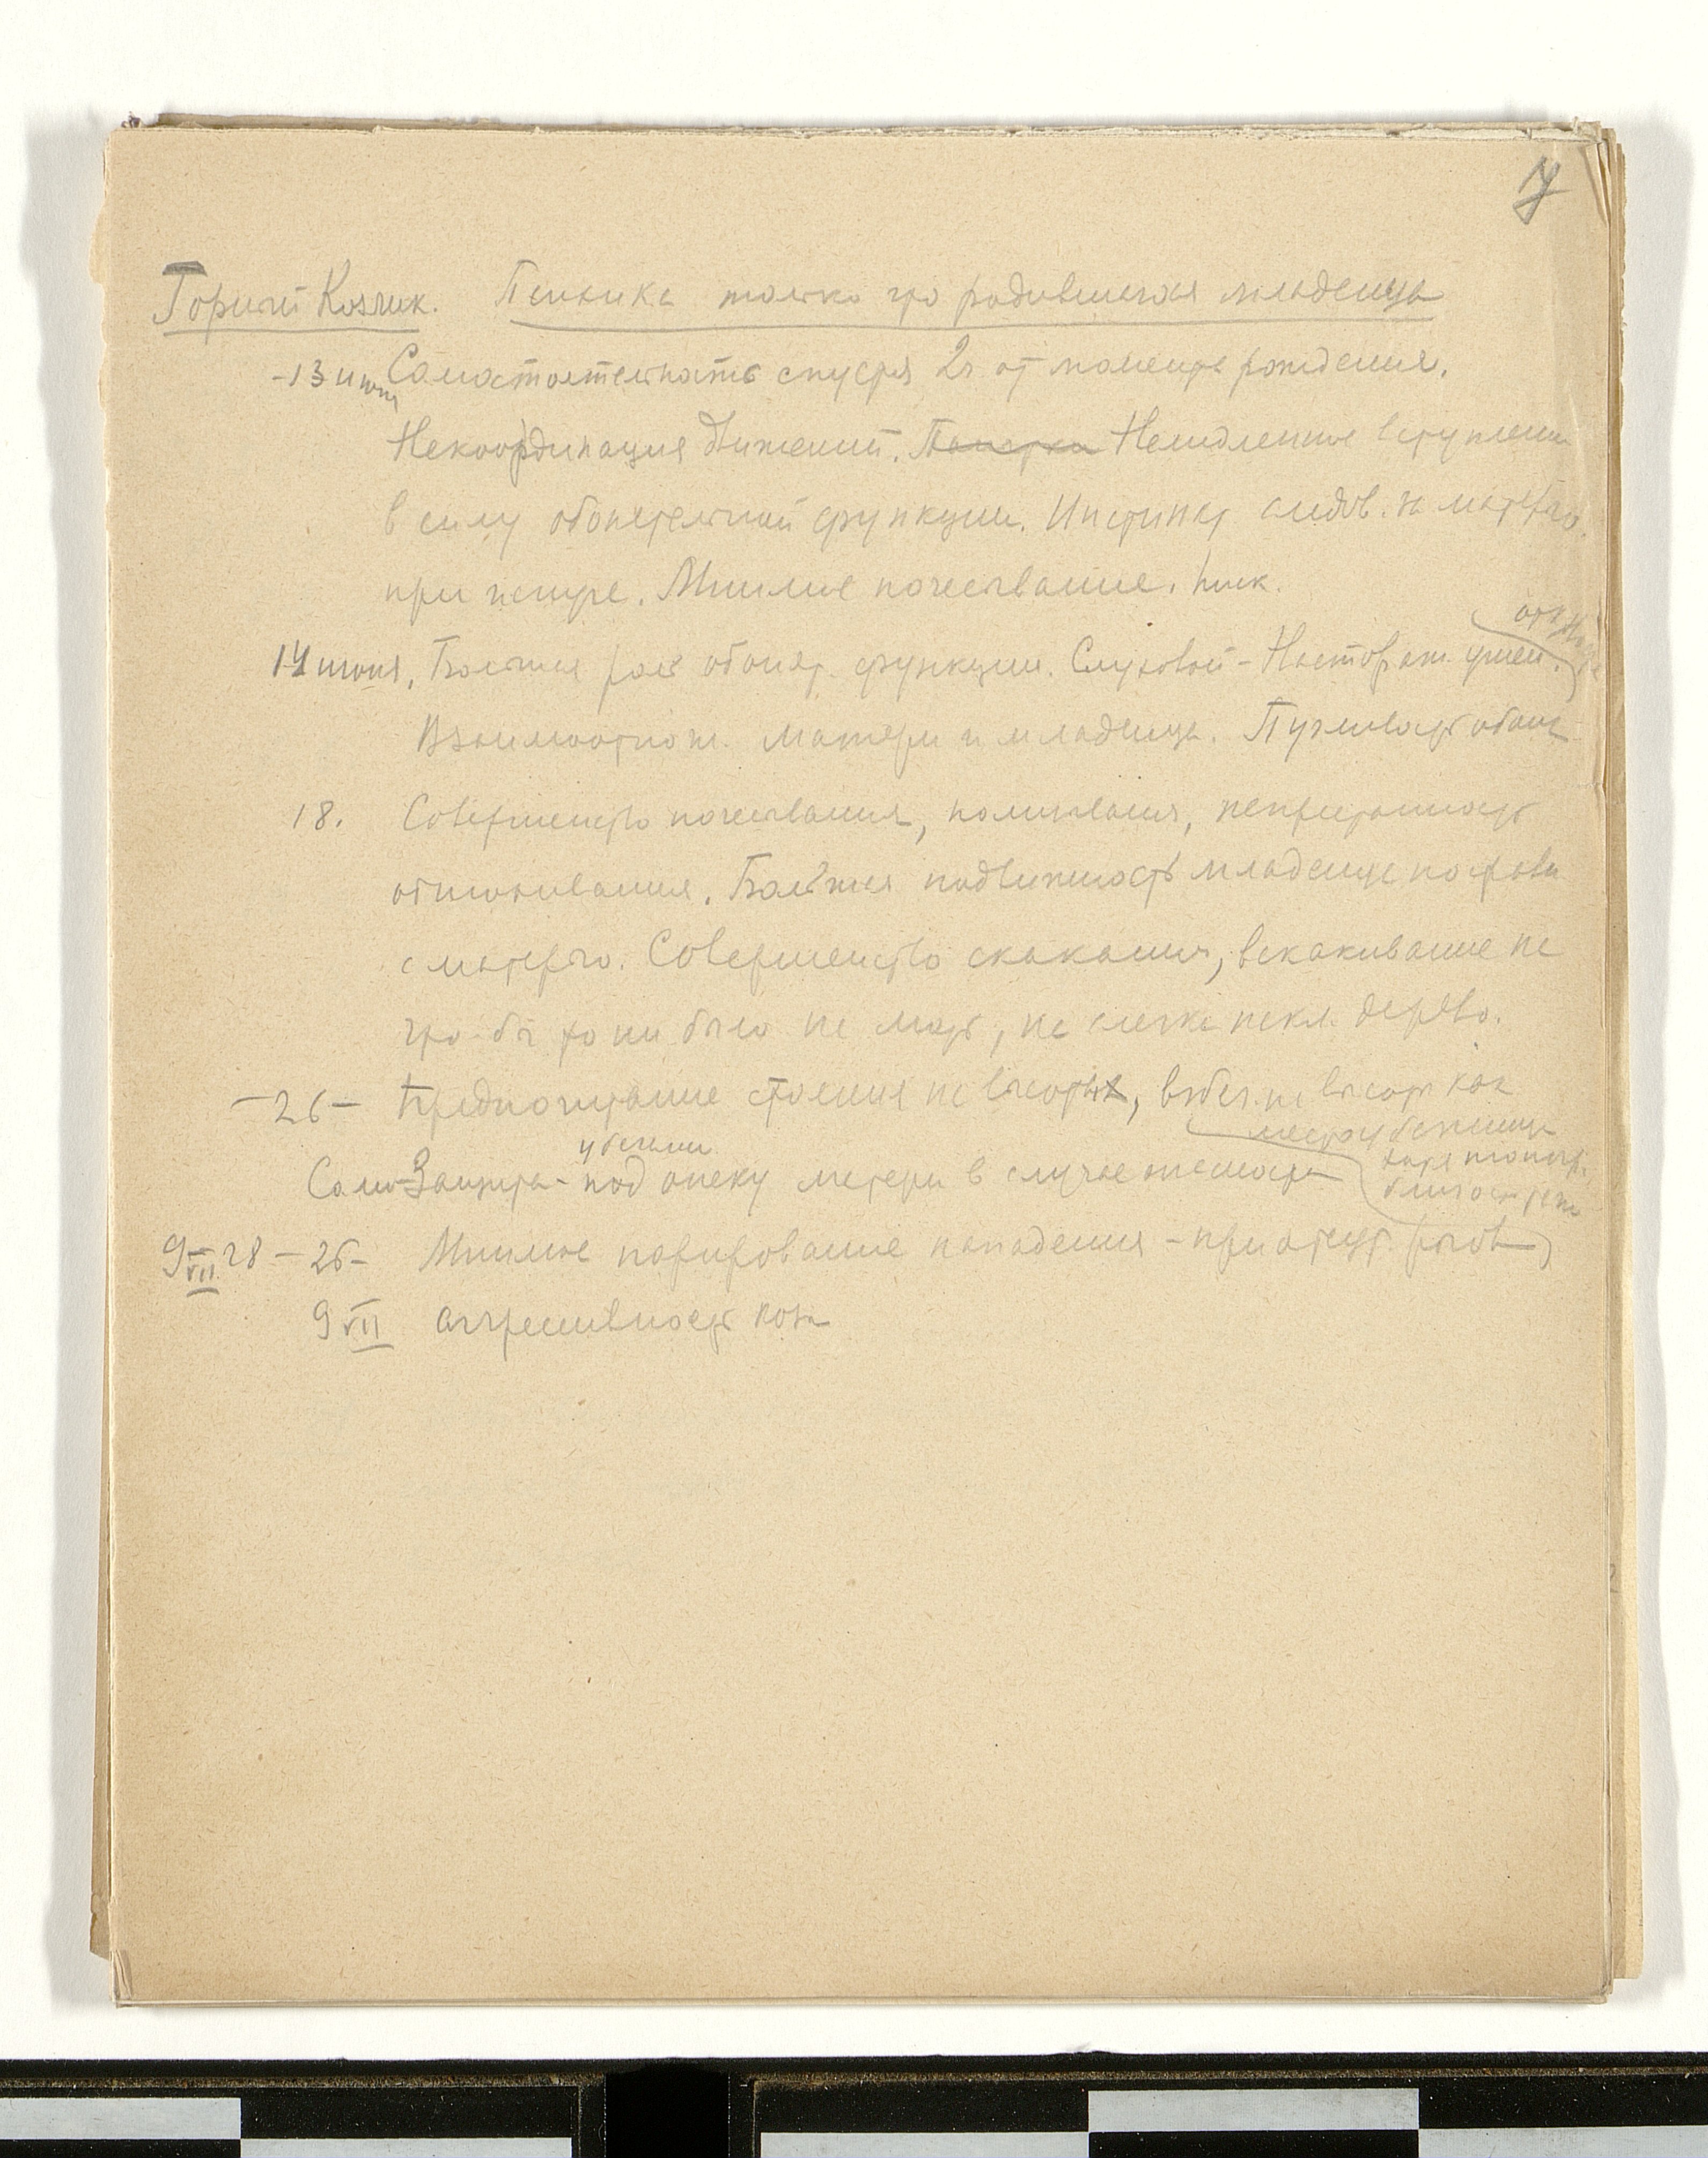 7
Горный Козлик. Психика только что родившегося младенца
-13 июня Самостоятельность спустя 2 ч от момента рождения.
Некоординация движений. Немедленное вступление
в силу обонятельной функции. Инстинкт следов. за матерью
при испуге. Мнимое почесывание. Писк.
14 июня. Большая роль обонят. функции. Слуховой - Насторож. ушей.
Взаимоотнош. матери и младенца. Пугливость
18. Совершенство почесывания, непрестанность
Большая подвижность младенца
с матерью. Совершенство скакания, вскакивание на
что бы то ни было на мать, на слегка накл. дерево.
-26- Предпочитание стояния на высотах, на высоту как
место убежища
убегание
Само-Защита - под опеку матери в случае опасности
9 VII 28 - 26- Мнимое парирование нападения - при отсут. рогов)
9 VII агрессивность коз